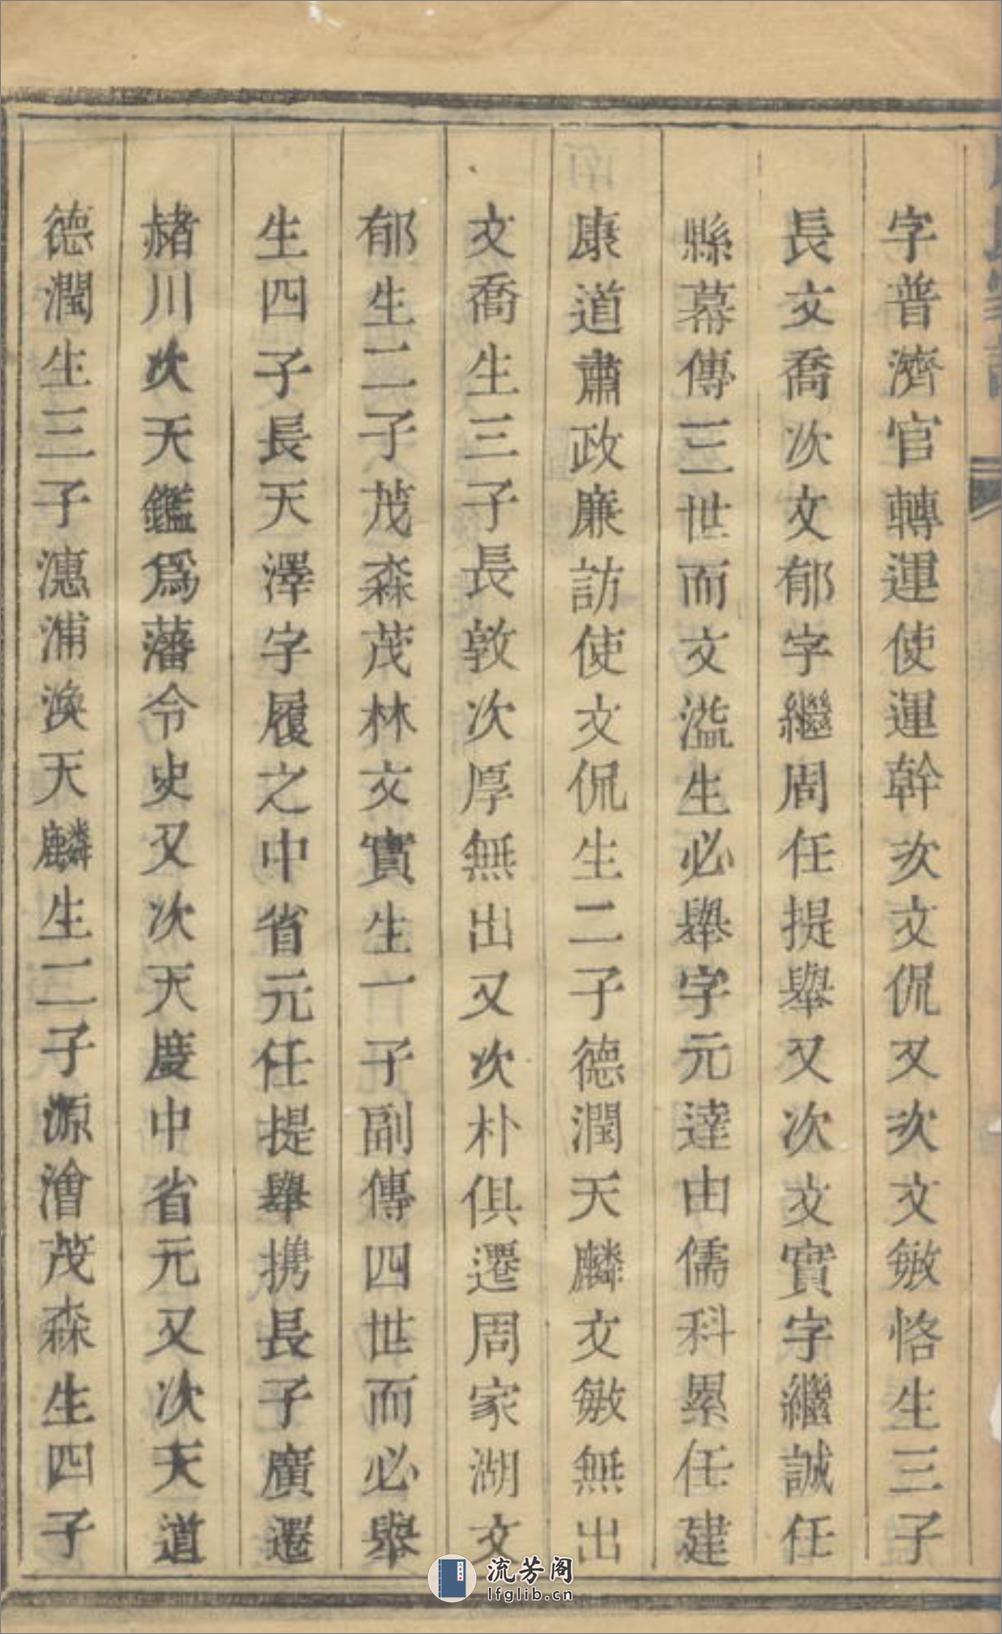 字普濟官轉運使運幹次文侃又次文敏恪生三子
長文喬次文郁字繼周任提舉又次文實字繼誠任
縣幕傳三世而文溢生必舉字元達由儒科累任建
康道肅政廉訪使文侃生二子德潤天麟文敏無出
文喬生三子長敦次厚無出又次朴俱遷周家湖文
郁生二子茂森茂林文實生一子副傳四世而必舉
生四子長天澤字履之中省元任提舉携長子廣遷
赭川次天鑑爲藩令史又次天慶中省元又次天道
德潤生三子濾浦渙天麟生二子源澮茂森生四子
流芳阁
lfglib.cn